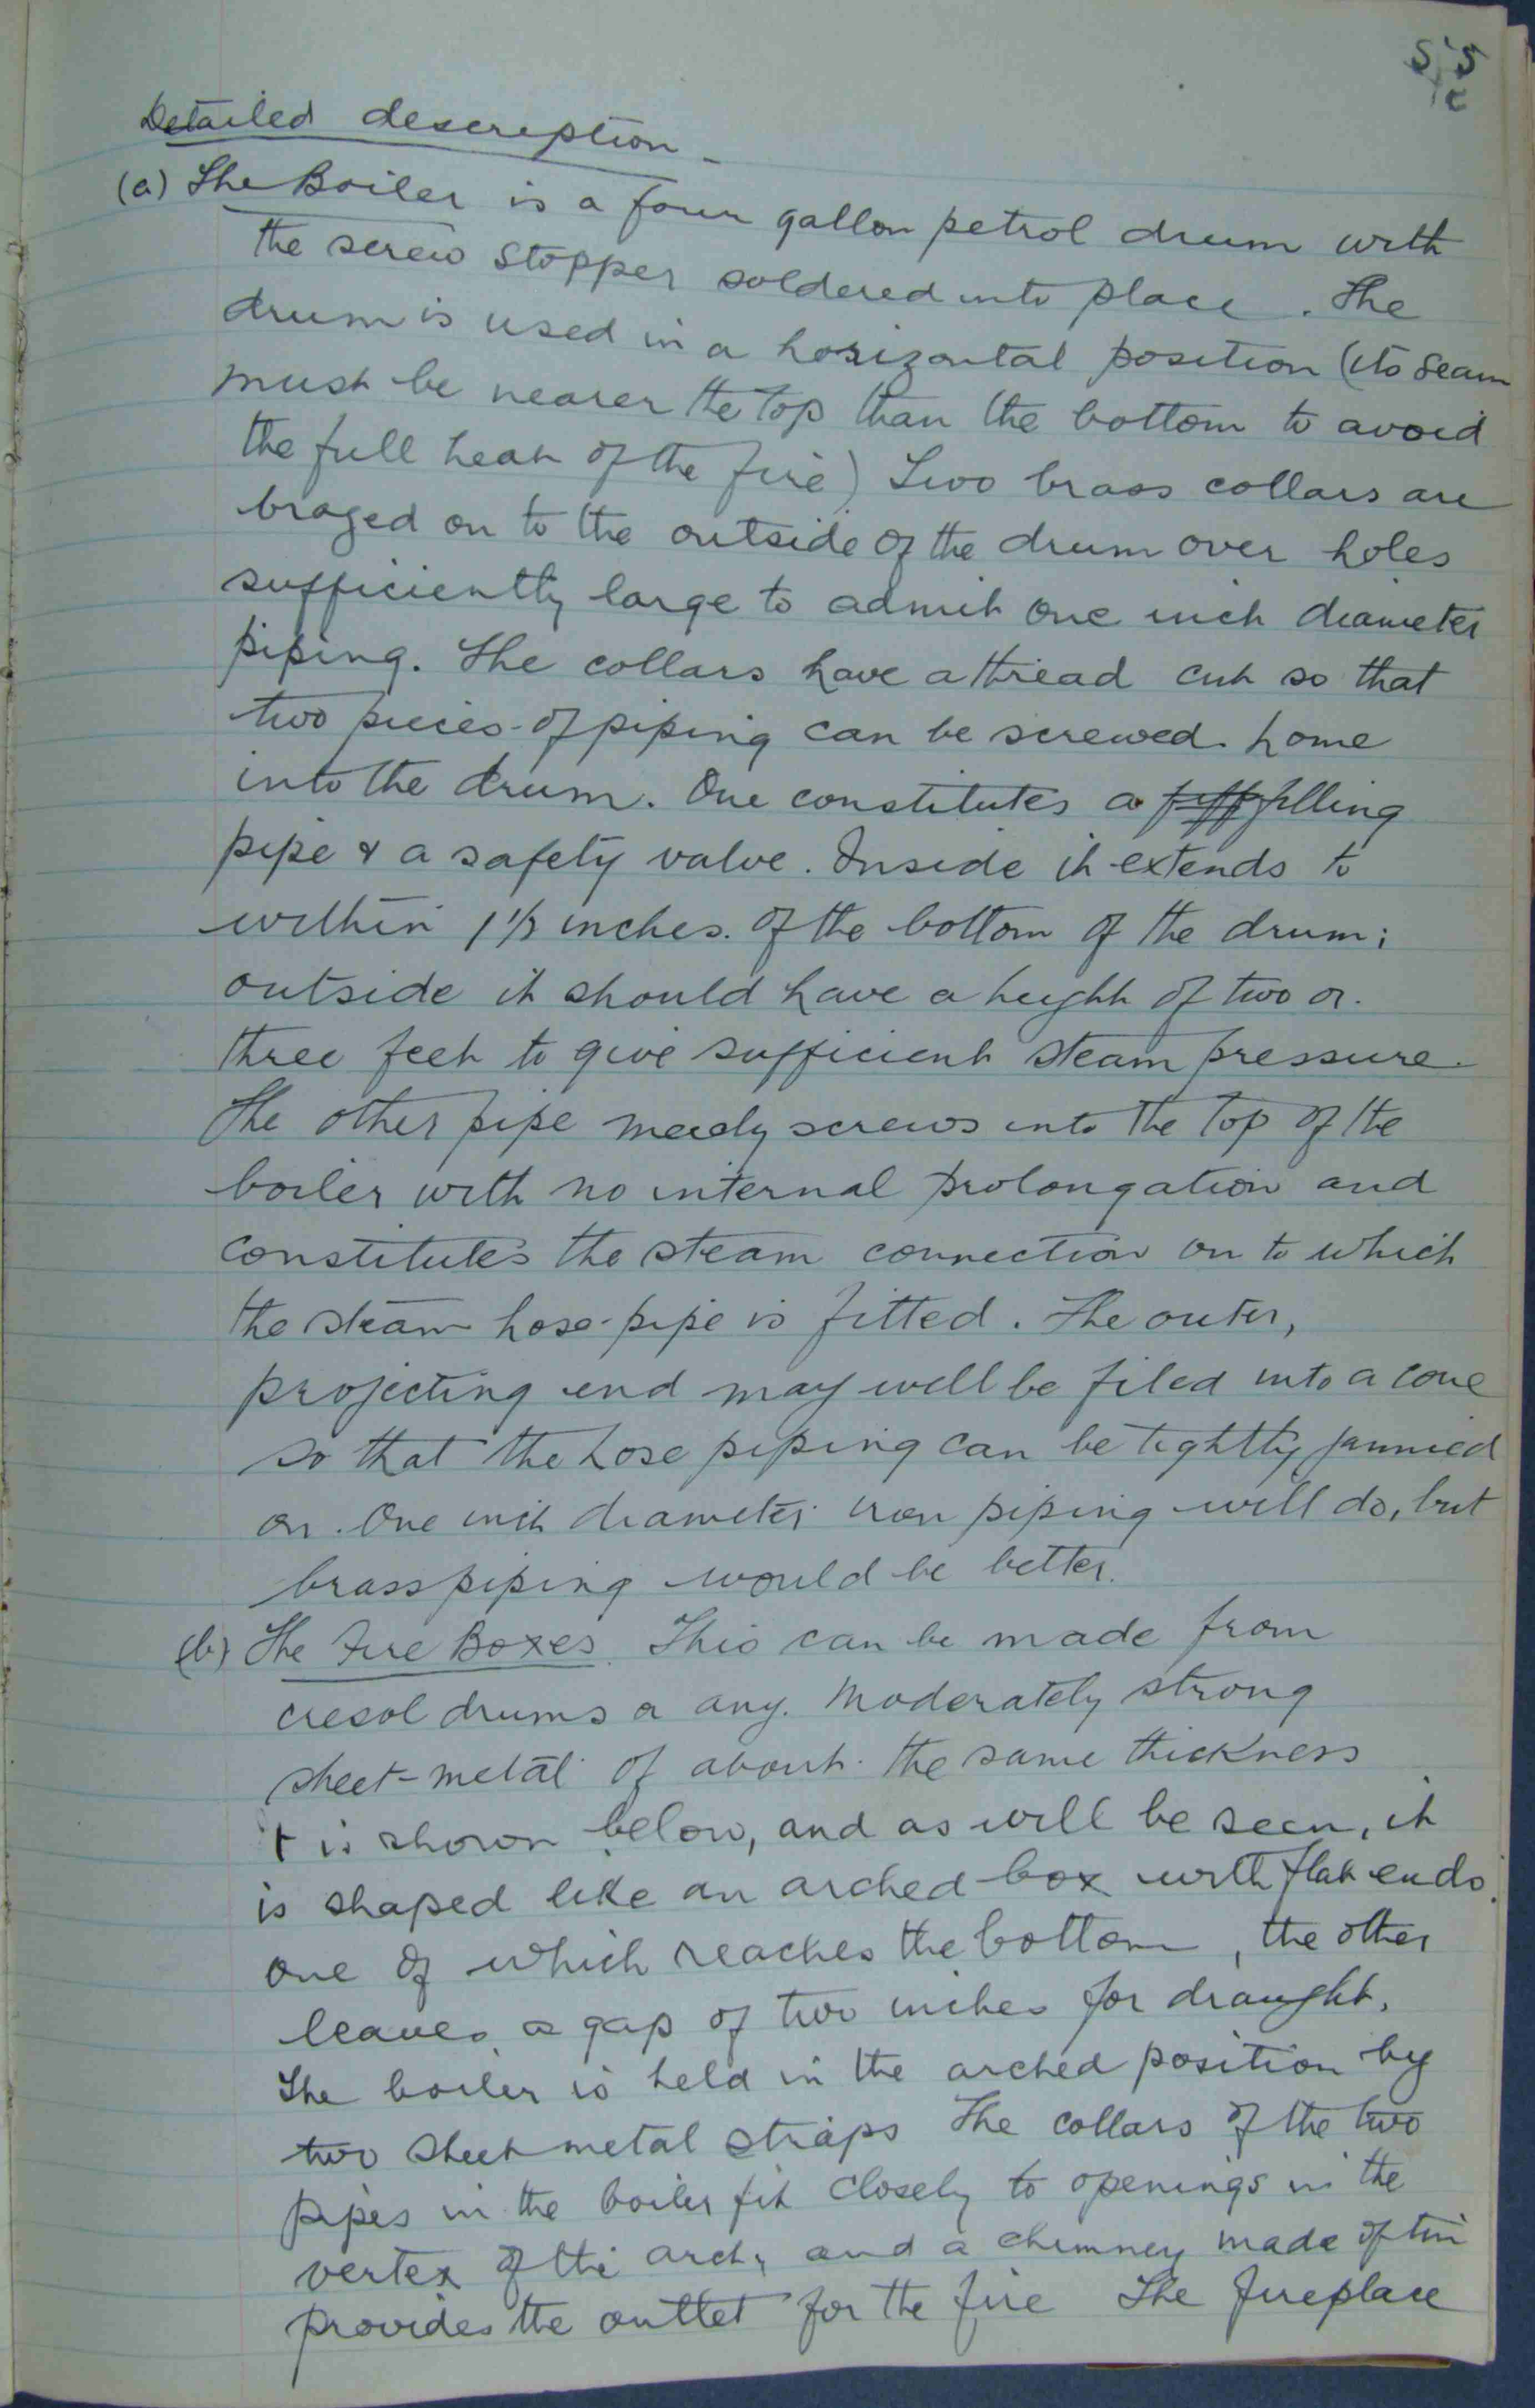 55
Detailed description -
(a) The Boiler is a four gallon petrol drum with
the screw stopper soldered into place. The
drum is used in a horizontal position (its seam
must be nearer the top than the bottom to avoid
the full heat of the fire) Two brass collars are
brazed on to the outside of the drum over holes
sufficiently large to admit one inch diameter
piping. The collars have a thread cut so that
two pieces of piping can be screwed home
into the drum. One constitutes a filling
pipe & a safety valve. Inside it extends to
within 1 1/2 inches of the bottom of the drum;
outside it should have a height of two or
three feet to give sufficient steam pressure.
The other pipe merely screws into the top of the
boiler with no internal prolongation and
constitutes the steam connection on to which
the steam hose-pipe is fitted. The outer,
projecting end may well be filed into a cone
so that the hose piping can be tightly jammed
on. One inch diameter iron piping will do, but
brass piping would be better.
(b) The Fire Boxes. This can be made from
cresol drums or any moderately strong
sheet-metal of about the same thickness
It is shown below, and as will be seen, it
is shaped like an arched box with flat ends.
one of which reaches the bottom, the other
leaves a gap of two inches for draught.
The boiler is held in the arched position by
two sheet metal straps The collars of the two
pipes in the boiler fit closely to openings in the
vertex of the arch, and a chimney made of tin
provides the outlet for the fire The fireplace